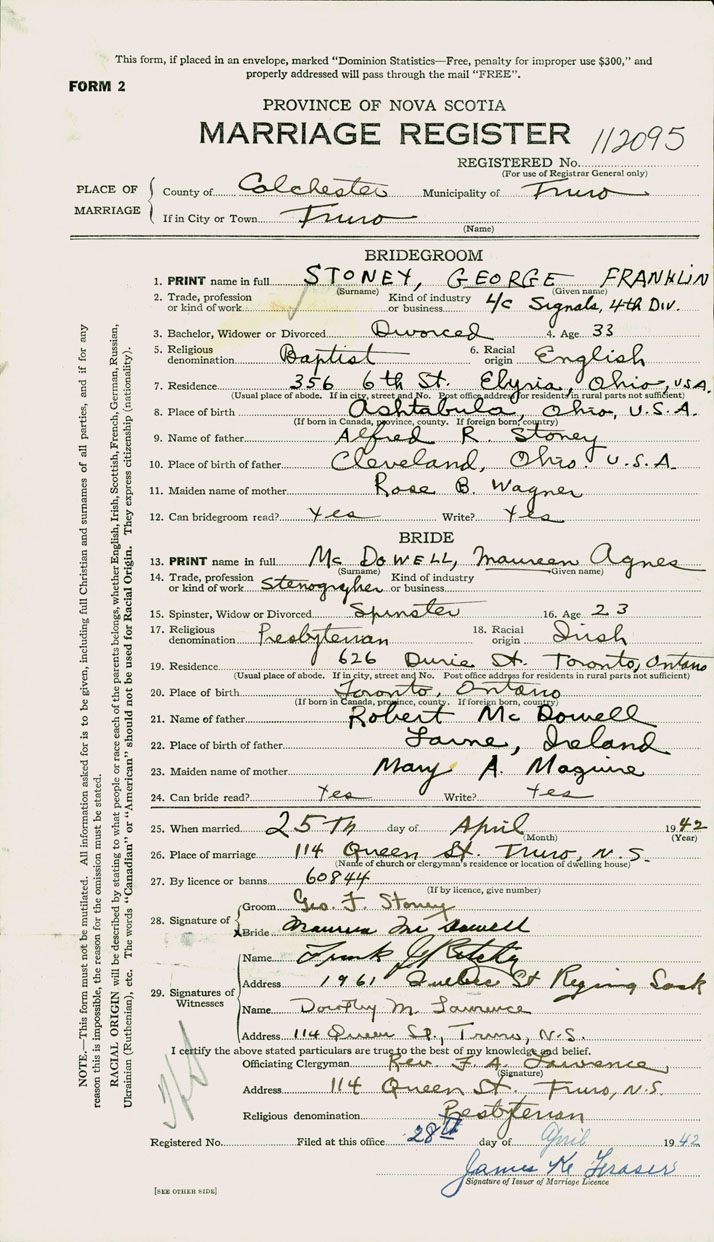 This form, if placed in an envelope, marked "Dominion Statistics—Free, penalty for improper use $300," and
properly addressed will pass through the mail "FREE".
FORM 2
PROVINCE OF NOVA SCOTIA
MARRIAGE REGISTER 112095
REGISTERED No.
(For use of Registrar General only)
PLACE OF MARRIAGE
County of Colchester Municipality of Truro
If in City or Town Truro
(Name)
BRIDEGROOM
1. PRINT name in full STONEY, GEORGE FRANKLIN
(Surname) (Given name)
2. Trade, profession or kind of work Kind of industry or business L/c Signals, 4th Div.
3. Bachelor, Widower or Divorced Divorced 4. Age 33
5. Religious denomination Baptist 6. Racial origin English
7. Residence 356 6th St. Elyria, Ohio, U.S.A.
(Usual place of abode. If in city, street and No. Post office address for residents in rural parts not sufficient)
8. Place of birth Ashtabula, Ohio, U.S.A.
(If born in Canada, province, county. If foreign born, country)
9. Name of father Alfred R. Stoney
10. Place of birth of father Cleveland, Ohio. U.S.A.
11. Maiden name of mother Rose B. Wagner
12. Can bridegroom read? Yes Write? Yes
BRIDE
13. PRINT name in full McDOWELL, Maureen Agnes
(Surname) (Given name)
14. Trade, profession or kind of work Stenogrypher Kind of industry or business
15. Spinster, Widow or Divorced Spinster 16. Age 23
17. Religious denomination Presbyterian 18. Racial origin Irish
19. Residence 626 Durie St. Toronto, Ontario
(Usual place of abode. If in city, street and No. Post office address for residents in rural parts not sufficient)
20. Place of birth Toronto, Ontario
(If born in Canada, province, county. If foreign born, country)
21. Name of father Robert McDowell
22. Place of birth of father Larne, Ireland
23. Maiden name of mother Mary A. Maguire
24. Can bride read? Yes Write? Yes
25. When married 25Th day of April 1942
(Month) (Year)
26. Place of marriage 114 Queen St. Truro, N.S.
(Name of church or clergyman's residence or location of dwelling house)
27. By licence or banns 60844
(If by licence, give number)
28. Signature of
Groom Geo. F. Stoney
Bride Maureen McDowell
29. Signatures of Witnesses
Name Frank J
Address 1961 Quebec St Regina Sask
Name Dorothy M. Lawrence
Address 114 Queen St., Truro, N.S.
I certify the above stated particulars are true to the best of my knowledge and belief.
Officiating Clergyman Rev. F. A. Lawrence
(Signature)
Address 114 Queen St. Truro, N.S.
Religious denomination Presbyterian
Registered No. Filed at this office 28th day of April 1942
James K Fraser
Signature of Issuer of Marriage Licence
[SEE OTHER SIDE]
NOTE.—This form must not be mutilated. All information asked for is to be given, including full Christian and surnames of all parties, and if for any
reason this is impossible, the reason for the omission must be stated.
RACIAL ORIGIN will be described by stating to what people or race each of the parents belongs, whether English, Irish, Scottish, French, German, Russian,
Ukrainian (Ruthenian), etc. The words "Canadian" or "American" should not be used for Racial Origin. They express citizenship (nationality).